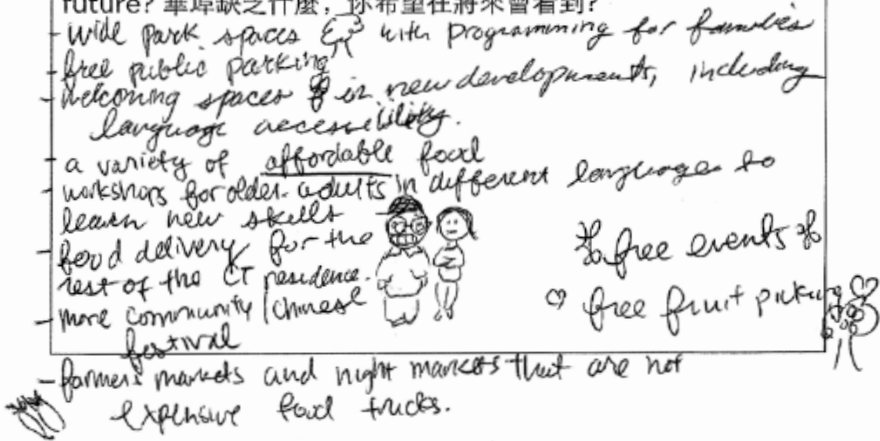 future? 華埠缺乏什麼，你希望在將來會看到?
- wide park spaces with programming for families
- free public parking
- welcoming spaces in new developments, including
language accessibility.
- a variety of affordable food
- workshops for older adults in different languages to
learn new skills
- food delivery for the
rest of the CT residence.
- more community / chinese
festival
free events
♡ free fruit picking
- farmers markets and night markets that are not
expensive food trucks.